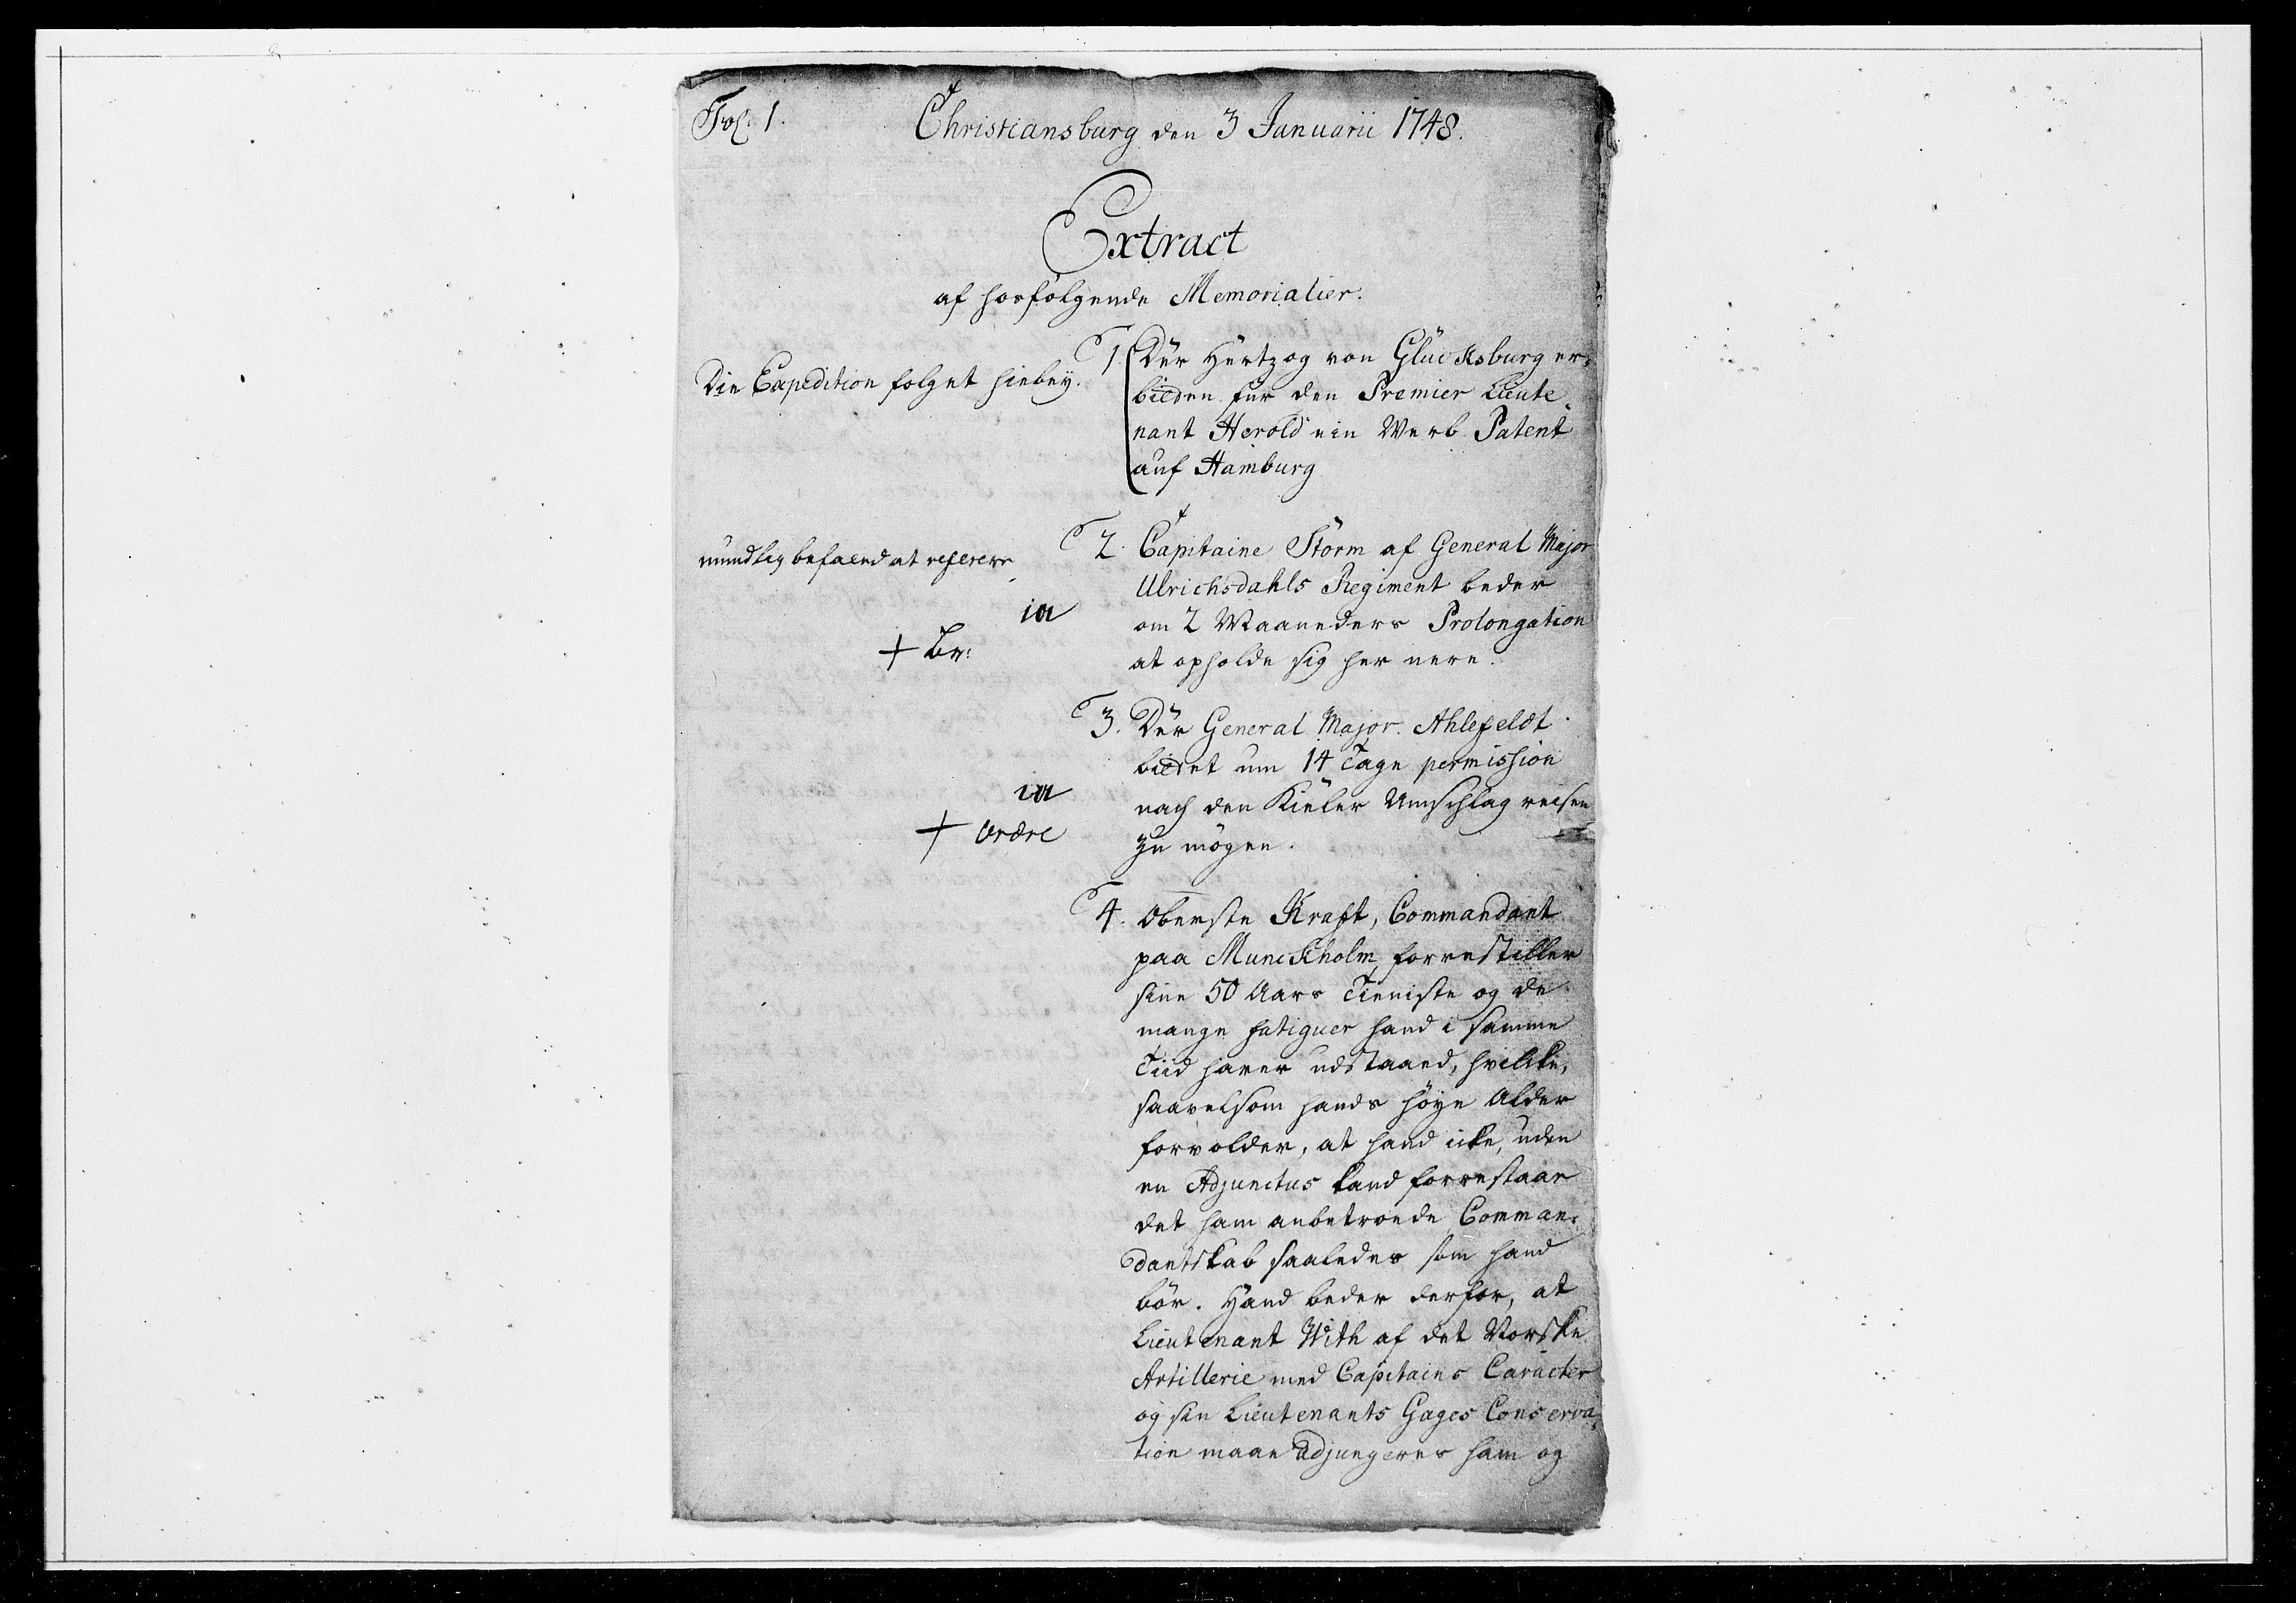 Fol: 1.
Christiansburg den 3 Januarii 1748.
Extract
af hosfølgende Memorialier.
Die Expedition folget hiebey.
1. Der Hertzog von Glücksburg er-
bieden für den Premier Lieute-
nant Herold ein Werb Patent
auf Hamburg
mundtlig befalend at referere
ia
+ Br:
2. Capitaine Storm af General Major
Ulrichsdahls Regiment beder
om 2 Maaneders Prolongation
at opholde sig her nere.
ia
+ Ordre
3. Der General Major Ahlefeldt
biedet um 14 Tage permission
nach den Kieler Umschlag reisen
zu mögen.
4. Oberste Kraft, Commandant
paa Munckholm, forrestiller
sine 50 Aars Tieniste og de
mange fatiguer hand i samme
Tiid haver udstaaed, hvilke,
saavelsom hands höye Alder
forvolder, at hand icke, uden
en Adjunctus kand forrestaae
det ham anbetroede Comman-
dantskab saaledes som hand
bör. Hand beder derfor, at
Lieutenant With af det Norske
Artillerie med Capitains Caracter
og sin Lieutenants Gages Conserva-
tion maae adjungeres ham og